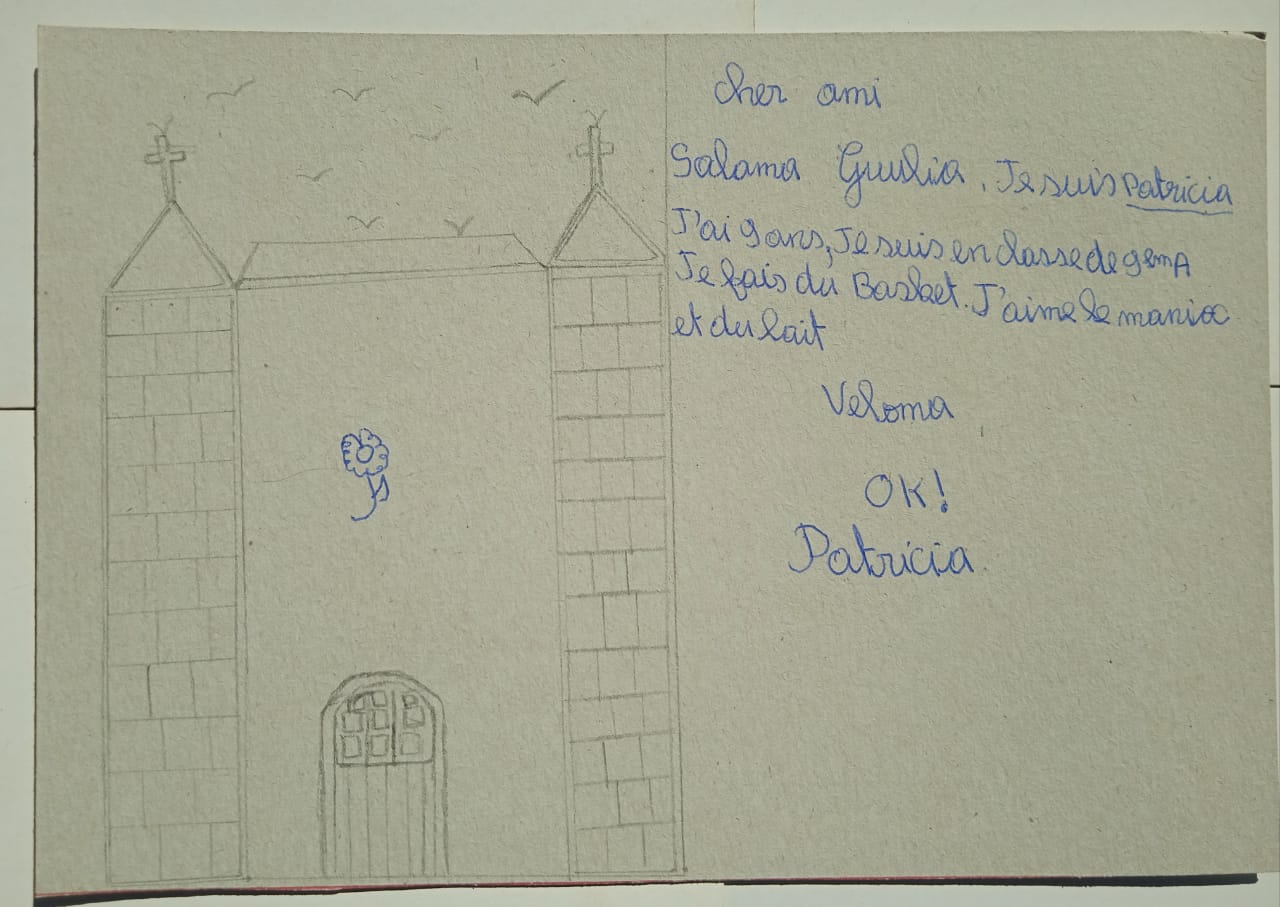 cher ami
Salama Giulia. Je suis Patricia
J'ai 9 ans, Je suis en classe de 9em A
Je fais du Basket. J'aime le manioc
et du lait
Veloma
OK!
Patricia